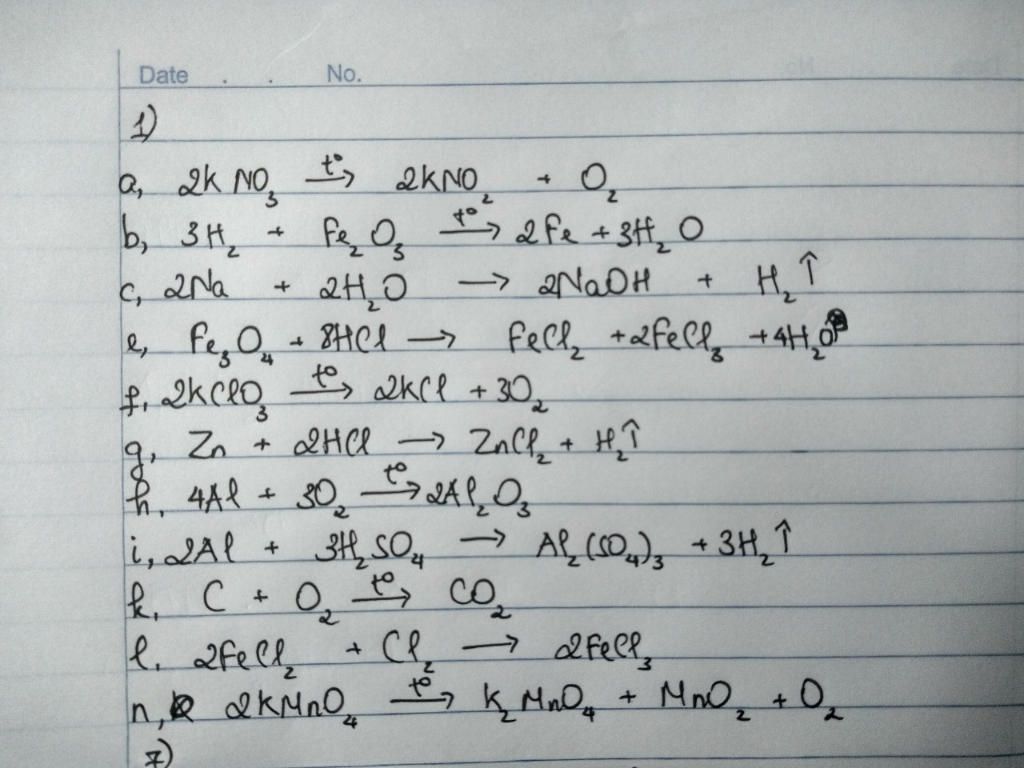 Date . . No.
1)
a, 2KNO₃ →(t°) 2KNO₂ + O₂
b, 3H₂ + Fe₂O₃ →(t°) 2Fe + 3H₂O
c, 2Na + 2H₂O → 2NaOH + H₂↑
e, Fe₃O₄ + 8HCl → FeCl₂ + 2FeCl₃ + 4H₂O
f, 2KClO₃ →(t°) 2KCl + 3O₂
g, Zn + 2HCl → ZnCl₂ + H₂↑
h, 4Al + 3O₂ →(t°) 2Al₂O₃
i, 2Al + 3H₂SO₄ → Al₂(SO₄)₃ + 3H₂↑
k, C + O₂ →(t°) CO₂
l, 2FeCl₂ + Cl₂ → 2FeCl₃
n, 2KMnO₄ →(t°) K₂MnO₄ + MnO₂ + O₂
7)